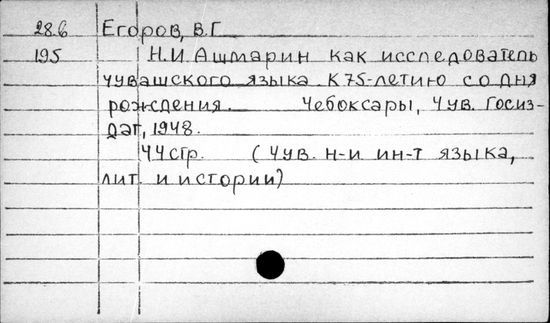 28.6 Егоров, В.Г
195 Н.И. Ашмарин как исследователь
чувашского языка К 75-летию со дня
рождения. Чебоксары, Чув. Госиз-
дат, 1948.
44 стр. (Чув. н-и ин-т языка,
лит. и истории)